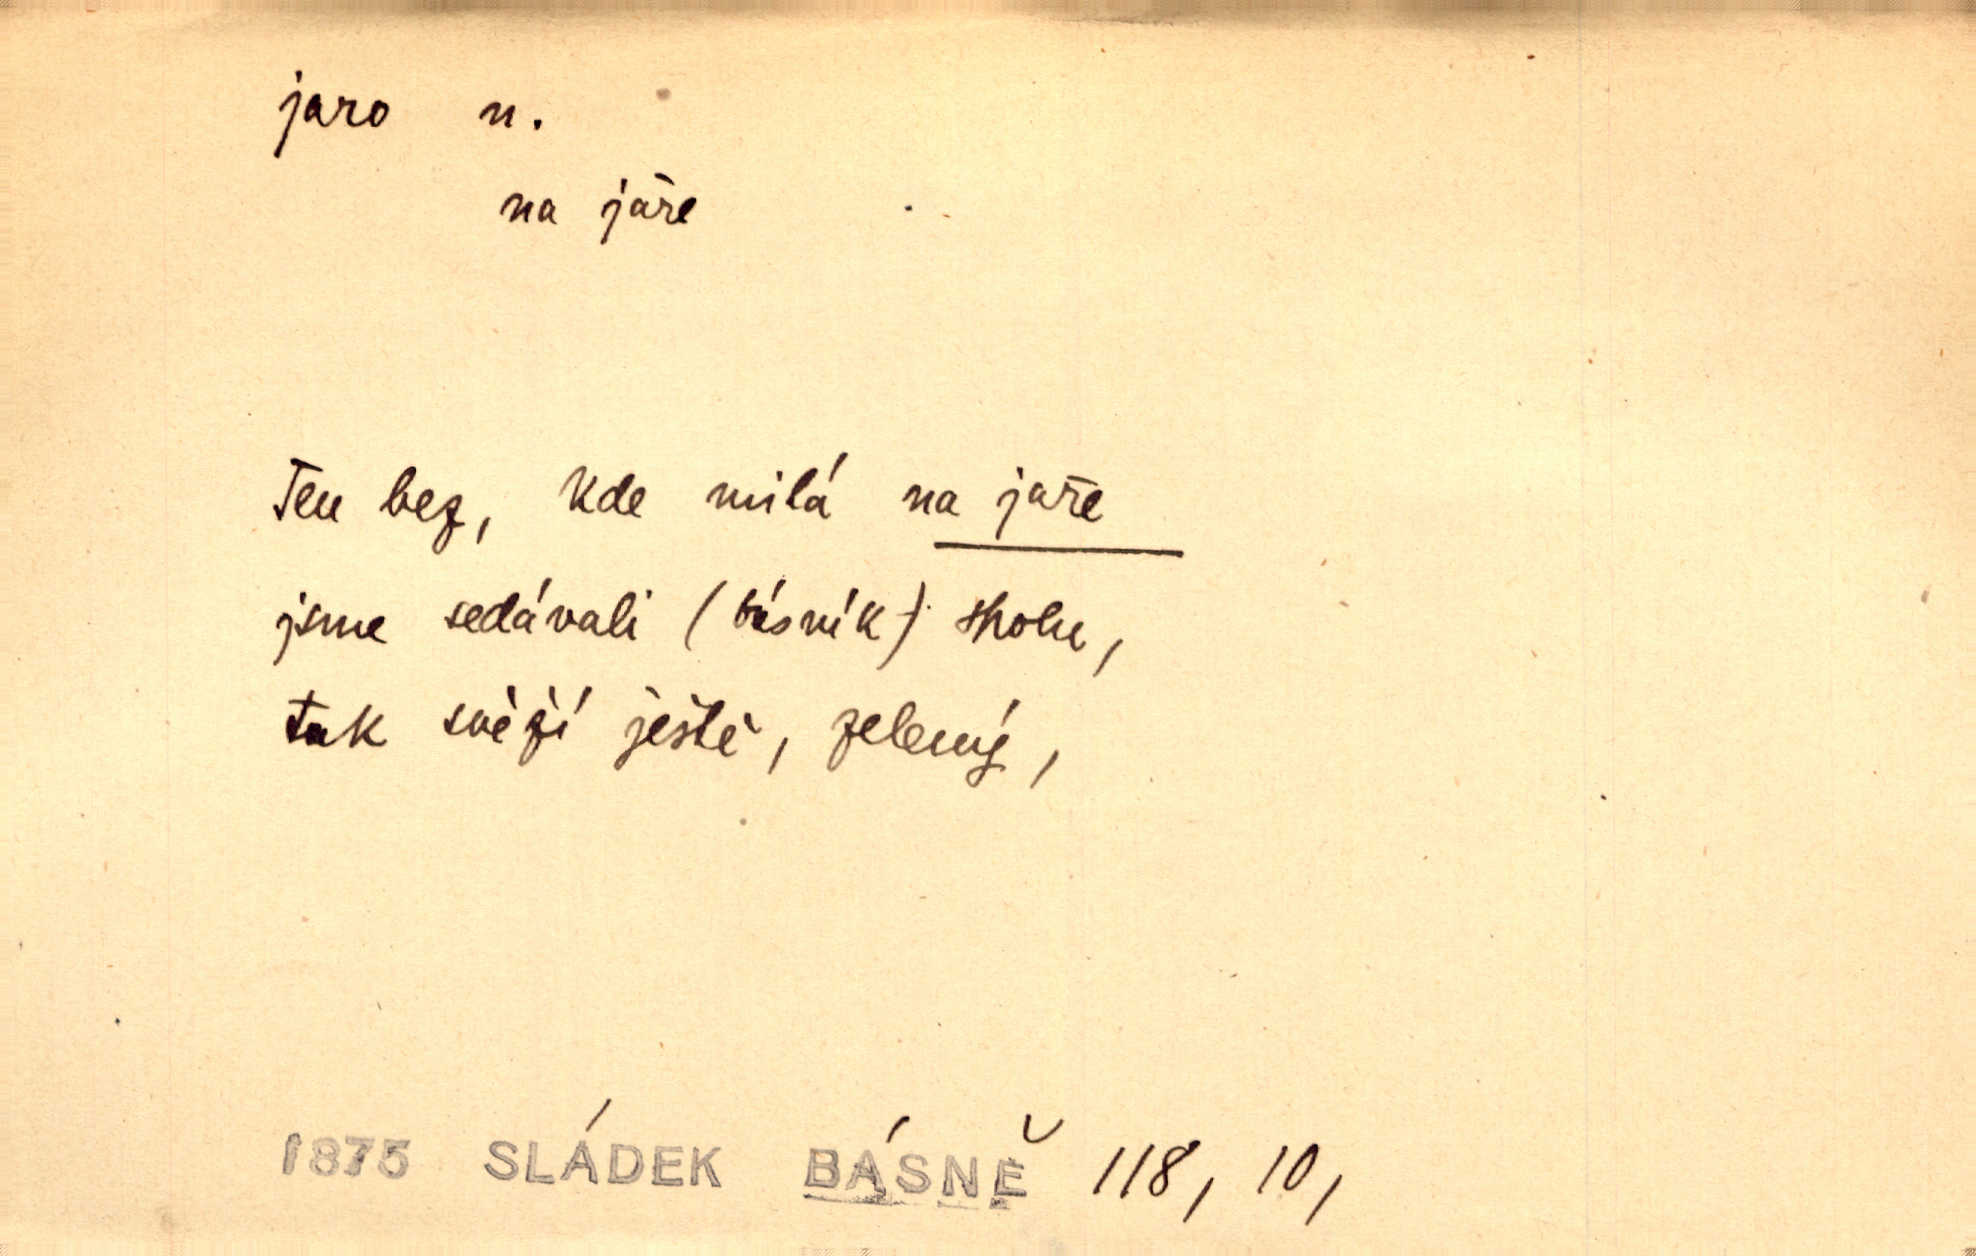 jaro n.
na jaře
Ten bez, kde milá na jaře
jsme sedávali (básník) spolu,
tak svěží ještě, zelený,
1875 SLÁDEK BÁSNĚ 118, 10,